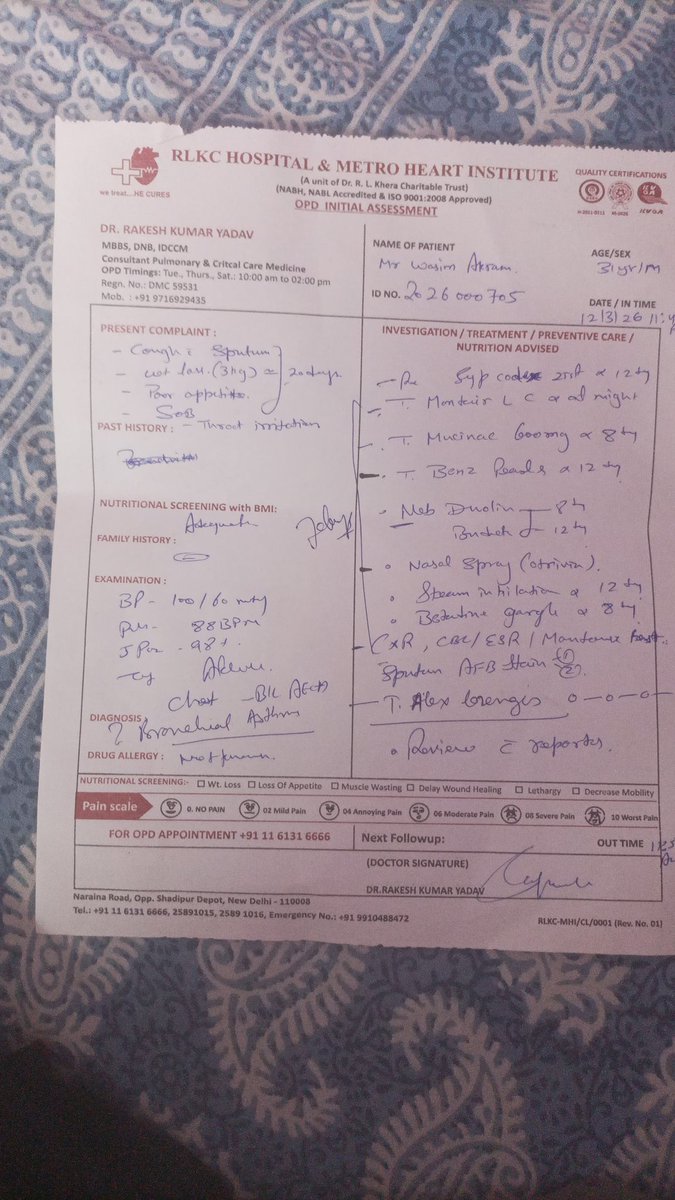 RLKC HOSPITAL & METRO HEART INSTITUTE
(A unit of Dr. R. L. Khera Charitable Trust)
(NABH, NABL Accredited & ISO 9001:2008 Approved)
OPD INITIAL ASSESSMENT
we treat...HE CURES
QUALITY CERTIFICATIONS
DR. RAKESH KUMAR YADAV
MBBS, DNB, IDCCM
Consultant Pulmonary & Critcal Care Medicine
OPD Timings: Tue., Thurs., Sat.: 10:00 am to 02:00 pm
Regn. No.: DMC 59531
Mob. : +91 9716929435
NAME OF PATIENT
Mr Wasim Akram.
AGE/SEX
31yr/M
ID NO. 2026000705
DATE / IN TIME
12/3/26
PRESENT COMPLAINT :
- Cough Sputum
- loss. (3kg) 20days.
- Poor appetite.
- SOB
PAST HISTORY : - Throat irritation
NUTRITIONAL SCREENING with BMI:
Adequate
FAMILY HISTORY :
EXAMINATION :
BP - 100/60
88 BPM
98
Chest
DIAGNOSIS
? Bronchial Asthma
DRUG ALLERGY :
INVESTIGATION / TREATMENT / PREVENTIVE CARE /
NUTRITION ADVISED
Syp
T. Montair LC night
T. Mucinac 600mg
T. Benz Pearls
Neb Duolin
Nasal Spray (otrivin).
Steam inhilation
Betadine gargle
CXR, CBC/ESR/Mantoux test.
Sputum AFB Stain
T. Alex lorenges 0-0-0
Review reports.
NUTRITIONAL SCREENING:- Wt. Loss Loss Of Appetite Muscle Wasting Delay Wound Healing Lethargy Decrease Mobility
Pain scale 0. NO PAIN 02 Mild Pain 04 Annoying Pain 06 Moderate Pain 08 Severe Pain 10 Worst Pain
FOR OPD APPOINTMENT +91 11 6131 6666
Next Followup:
OUT TIME
(DOCTOR SIGNATURE)
DR.RAKESH KUMAR YADAV
Naraina Road, Opp. Shadipur Depot, New Delhi - 110008
Tel.: +91 11 6131 6666, 25891015, 2589 1016, Emergency No.: +91 9910488472
RLKC-MHI/CL/0001 (Rev. No. 01)